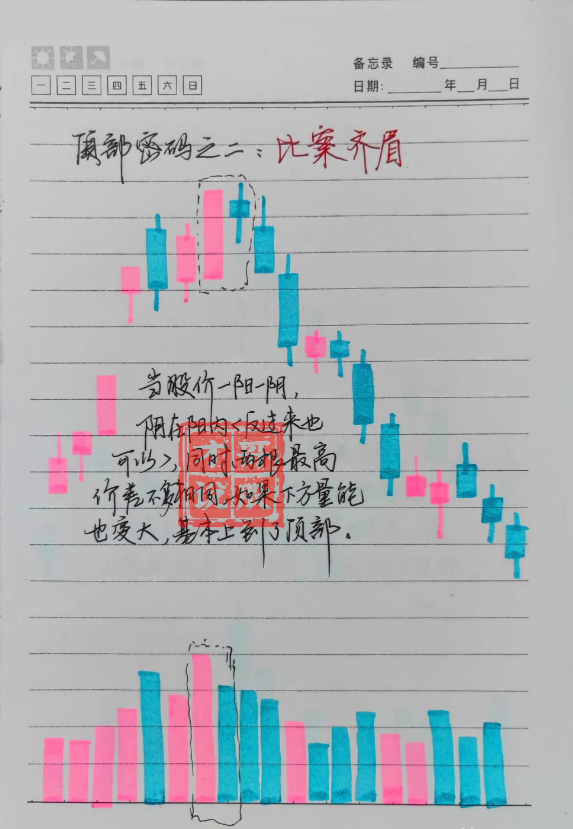 备忘录 编号
一 二 三 四 五 六 日
日期: 年 月 日
顶部密码之二：比案齐眉
当股价一阳一阴,
阴在阳内<反过来也
可以>,同时两根最高
价差不多相同.如果下方量能
也变大,基本上到了顶部。